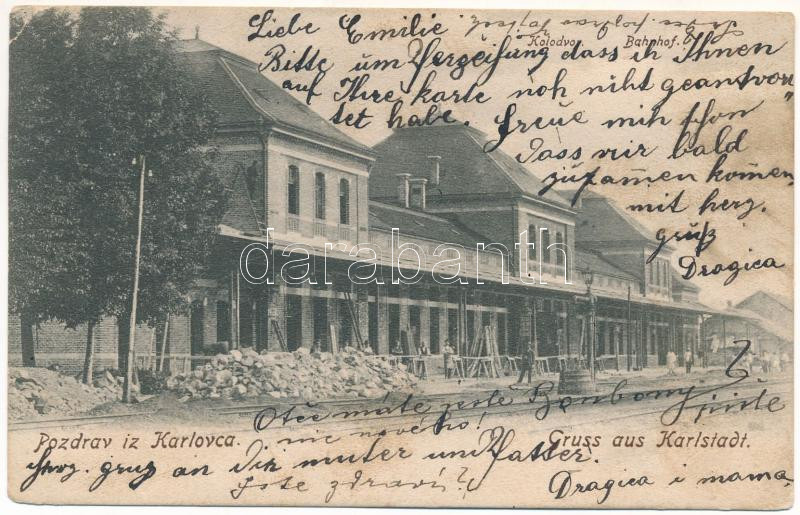 Liebe Emilie
Kolodvor Bahnhof.
Bitte um Verzeihung dass ih Ihnen
auf Ihre karte noh niht geantvor
tet habe. freue mih schon
dass vir bald
zuzamen komen,
mit herz.
gruß
Dragica
darabanth
Otče máte ješte Bonbony
nic nového!
Pozdrav iz Karlovca.
Gruss aus Karlstadt.
herz. gruß an Dir muter und Vatter.
Jste zdraví?
Dragica i mama.